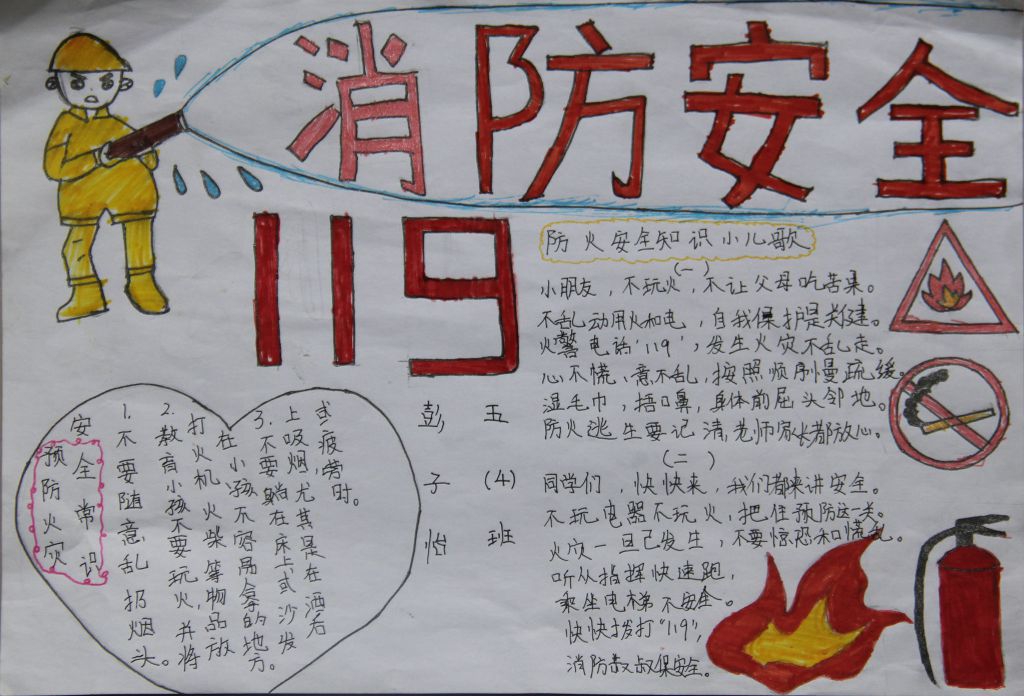 消防安全
119
防火安全知识小儿歌
(一)
小朋友，不玩火，不让父母吃苦果。
不乱动用火和电，自我保护是关建。
火警电话'119'，发生火灾不乱走。
心不慌，意不乱，按照顺序慢疏缓。
湿毛巾，捂口鼻，身体前屈头邻地。
防火逃生要记清，老师家长都放心。
(二)
同学们，快快来，我们都来讲安全。
不玩电器不玩火，把住预防这一关。
火灾一旦已发生，不要惊恐和慌乱。
听从指挥快速跑，
乘坐电梯不安全。
快快拨打"119"，
消防叔叔保安全。
五(4)班
彭子怡
预防火灾
安全常识
1.不要随意乱扔烟头。
2.教育小孩不要玩火，并将
打火机、火柴等物品放
在小孩不容易拿的地方。
3.不要躺在床上或沙发
上吸烟，尤其是在酒后
或疲劳时。